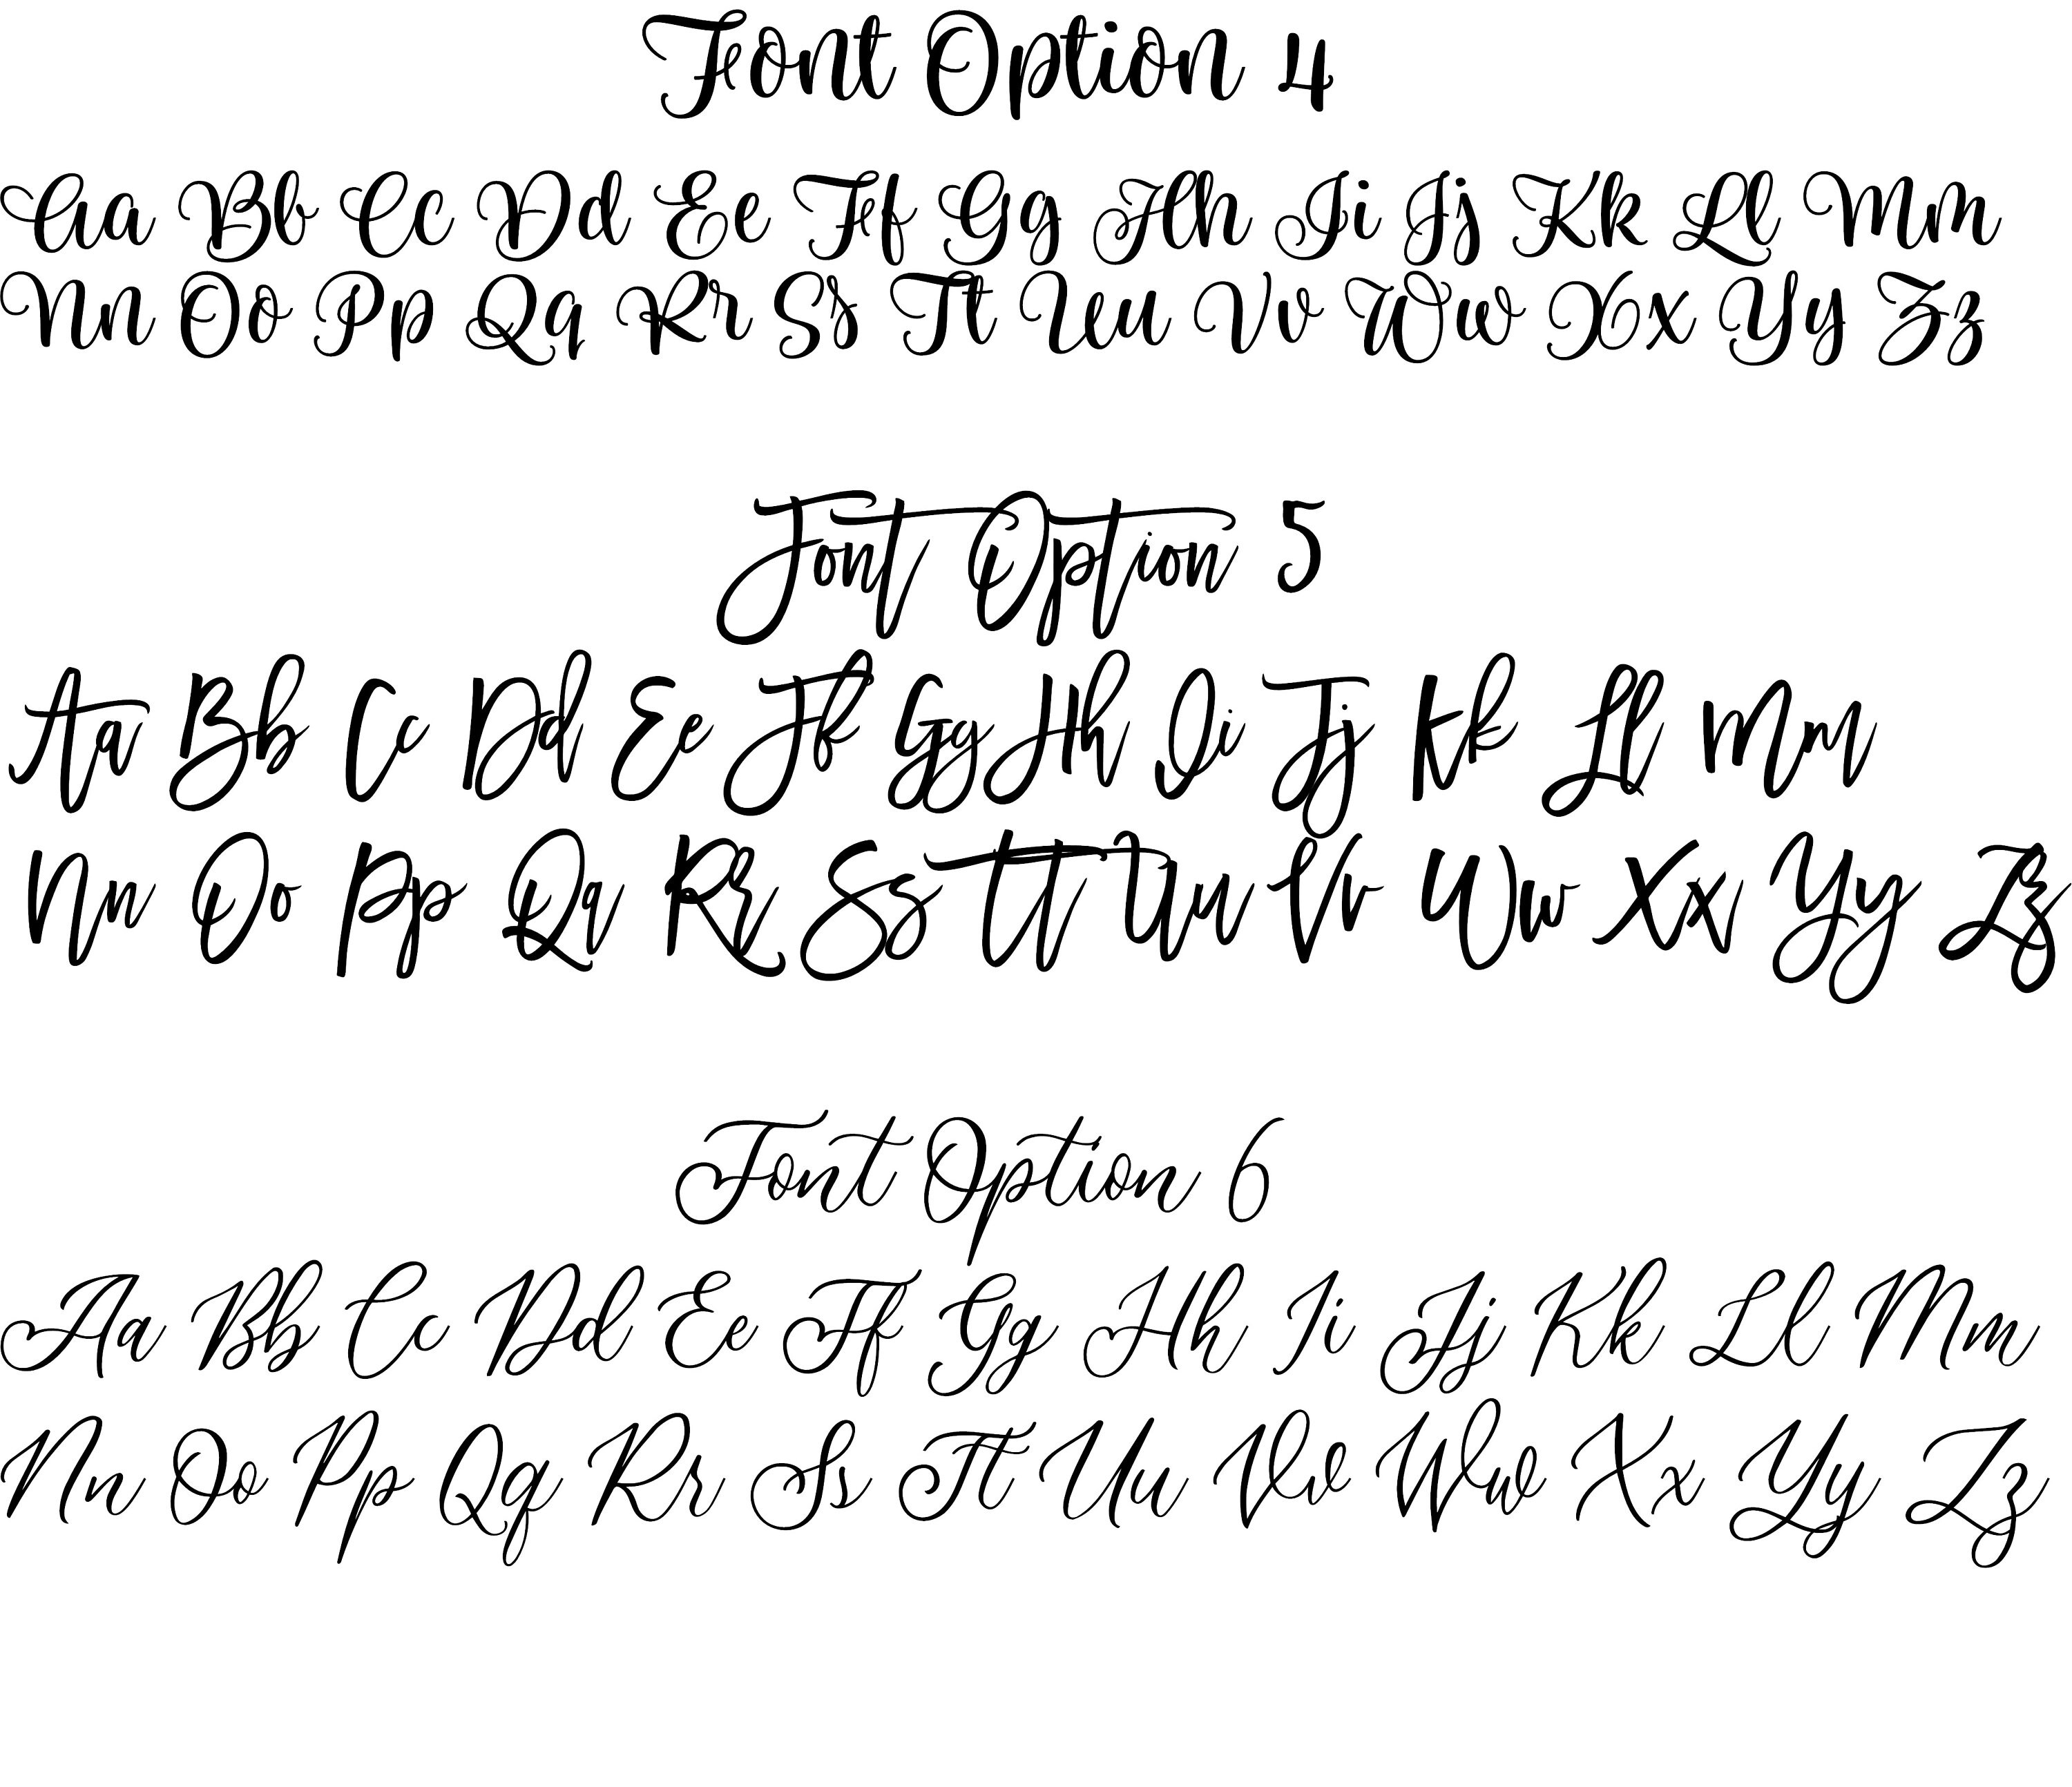 Font Option 4
Aa Bb Cc Dd Ee Ff Gg Hh Ii Jj Kk Ll Mm
Nn Oo Pp Qq Rr Ss Tt Uu Vv Ww Xx Yy Zz
Font Option 5
Aa Bb Cc Dd Ee Ff Gg Hh Ii Jj Kk Ll Mm
Nn Oo Pp Qq Rr Ss Tt Uu Vv Ww Xx Yy Zz
Font Option 6
Aa Bb Cc Dd Ee Ff Gg Hh Ii Jj Kk Ll Mm
Nn Oo Pp Qq Rr Ss Tt Uu Vv Ww Xx Yy Zz